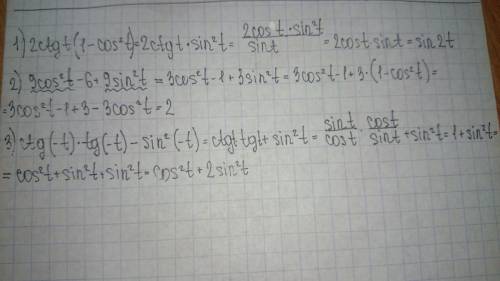 1) 2ctgt(1-cos²t)=2ctgt·sin²t= 2cost·sin²t/sint = 2cost sint = sin2t
2) 9cos²t-6+9sin²t = 3cos²t-1+3sin²t=3cos²t-1+3·(1-cos²t)=
=3cos²t-1+3-3cos²t=2
3) ctg(-t)·tg(-t)-sin²(-t)=ctgt tgt+sin²t= sint/cost · cost/sint +sin²t=1+sin²t=
=cos²t+sin²t+sin²t=cos²t+2sin²t